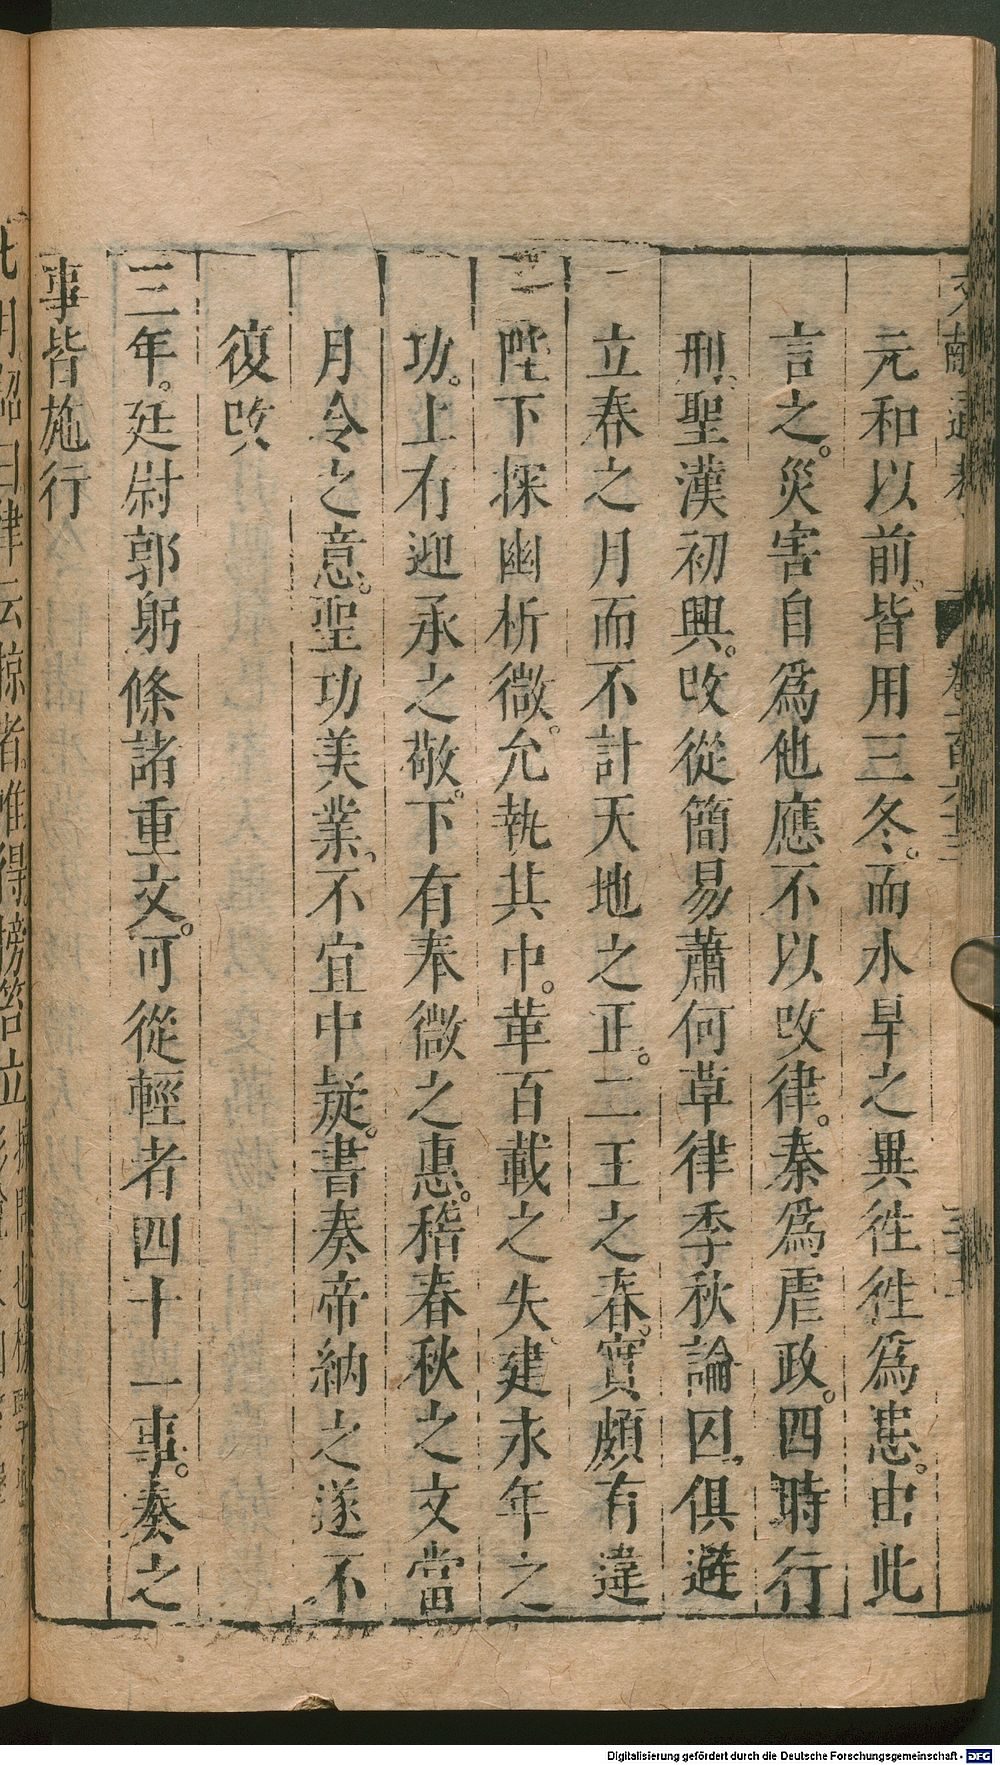 元和以前。皆用三冬。而水旱之異往往爲恙。由此
言之。災害自爲他應不以改律。秦爲虐政。四時行
刑。聖漢初興。改從簡易蕭何草律季秋論囚、俱避
立春之月而不計天地之正。二王之春。實頗有違
陛下探幽析微。允執其中。革百載之失。建永年之
功。上有迎承之敬。下有奉微之惠。稽春秋之文當
月令之意。聖功美業、不宜中疑。書奏帝納之遂不
復改
三年。廷尉郭躬條諸重文。可從輕者四十一事。奏之
事皆施行
Digitalisierung gefördert durch die Deutsche Forschungsgemeinschaft - DFG